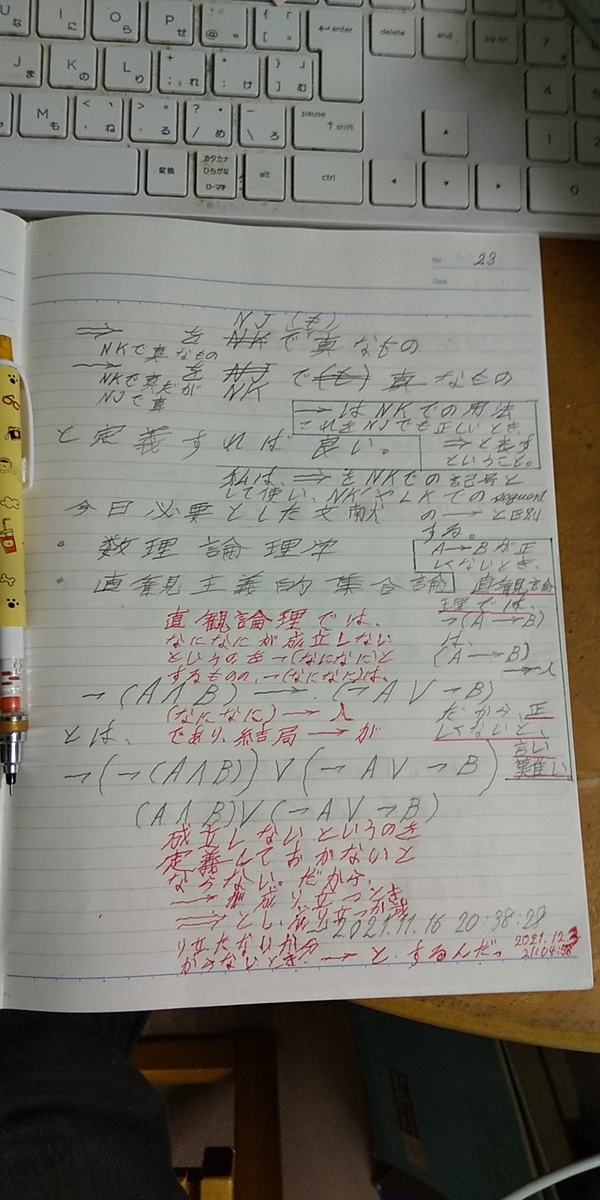 No 23
Date
NJ (も)
⇒ を NK で 真 なもの
NKで真なもの
→ を NJ で (も) 真 なもの
NKで真だが NK
NJで真
→はNKでの用法
これをNJでも正しいとき
⇒と表す
ということ。
と定義すれば良い。
私は、⇒をNKでの記号と
して使い、NKやLKでのsequent
の → と区別
する。
今日必要とした文献
・数理論理学
・直観主義的集合論
A→Bが正
しくないとき、
直観論
理では、
¬(A→B)
は、
(A→B)
→人
だから、正
しくないと、
言い
難い
直観論理では、
なになにが成立しない
というのを¬(なになに)と
するものの、¬(なになに)は、
¬(A∧B) → (¬A∨¬B)
(なになに)→人
とは、
であり、結局→が
¬(¬(A∧B))∨(¬A∨¬B)
(A∧B)∨(¬A∨¬B)
成立しないというのを
定義しておかないと
ならない。だから、
→が成り立つとき
⇒とし、成り立つか成
り立たないか分
からないとき→と、するんだ。
2021.11.16 20:38:28
2021.12.3
U な
I に
O ら
P せ
enter
delete
end
J ま
K の
L り
M も
pause
shift
変換
カタカナ
ひらがな
ローマ字
alt
ctrl
0